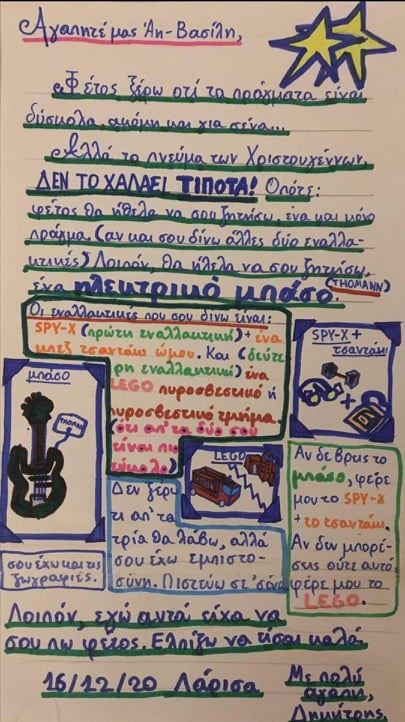 Αγαπητέ μας Άη-Βασίλη,
Φέτος ξέρω οτί τα πράγματα είναι
δύσκολα, ακόμη και για σένα...
Αλλά το πνεύμα των Χριστουγέννων,
ΔΕΝ ΤΟ ΧΑΛΑΕΙ ΤΙΠΟΤΑ! Οπότε:
φέτος θα ήθελα να σου ζητήσω, ένα και μόνο
πράγμα. (αν και σου δίνω άλλες δύο εναλλα-
κτικές) Λοιπόν, θα ήθελα να σου ζητήσω,
ένα ηλεκτρικό μπάσο. (THOMANN)
Οι εναλλακτικές που σου δίνω είναι:
SPY-X (πρώτη εναλλακτική) + ένα
μπεζ τσαντάκι ώμου. Και (δεύτε
ρη εναλλακτική) ένα
LEGO πυροσβεστικό ή
πυροσβεστικό τμήμα.
(ότι απ'τα δύο σου
είναι πιο
εύκολο)
SPY-X +
τσαντάκι
μπάσο
THOMANN
LEGO
Δεν ξέρω
τι απ'τα
τρία θα λάβω, αλλά
σου έχω εμπιστο-
σύνη. Πιστεύω σε 'σένα
Αν δε βρεις το
μπάσο, φέρε
μου το SPY-X
+ το τσαντάκι.
Αν δεν μπορέ-
σεις ούτε αυτό
φέρε μου το
LEGO.
σου έχω και τις
ζωγραφιές.
Λοιπόν, εγώ αυτά είχα να
σου πω φέτος. Ελπίζω να είσαι καλά
16/12/20 Λάρισα
Με πολύ
αγάπη,
Δημήτρης